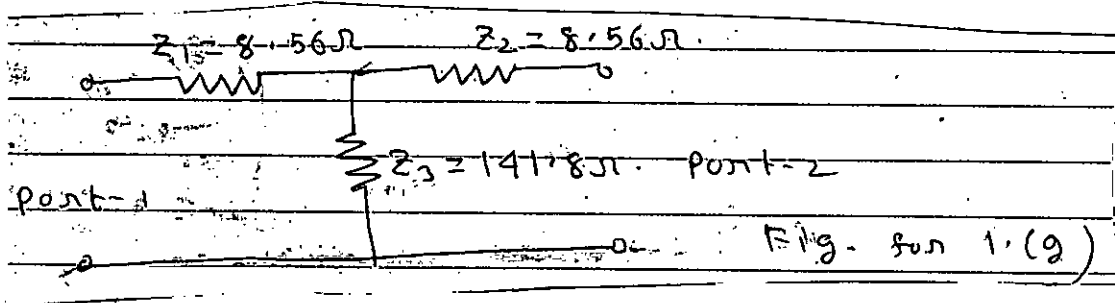 Z₁ = 8.56Ω
Z₂ = 8.56Ω.
Z₃ = 141.8Ω. Port-2
Port-1
Fig. for 1.(g)